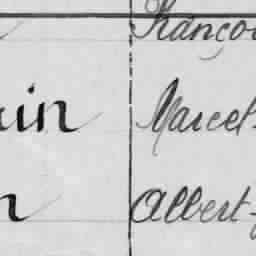 Françoi
in Marcel-
n Albert-